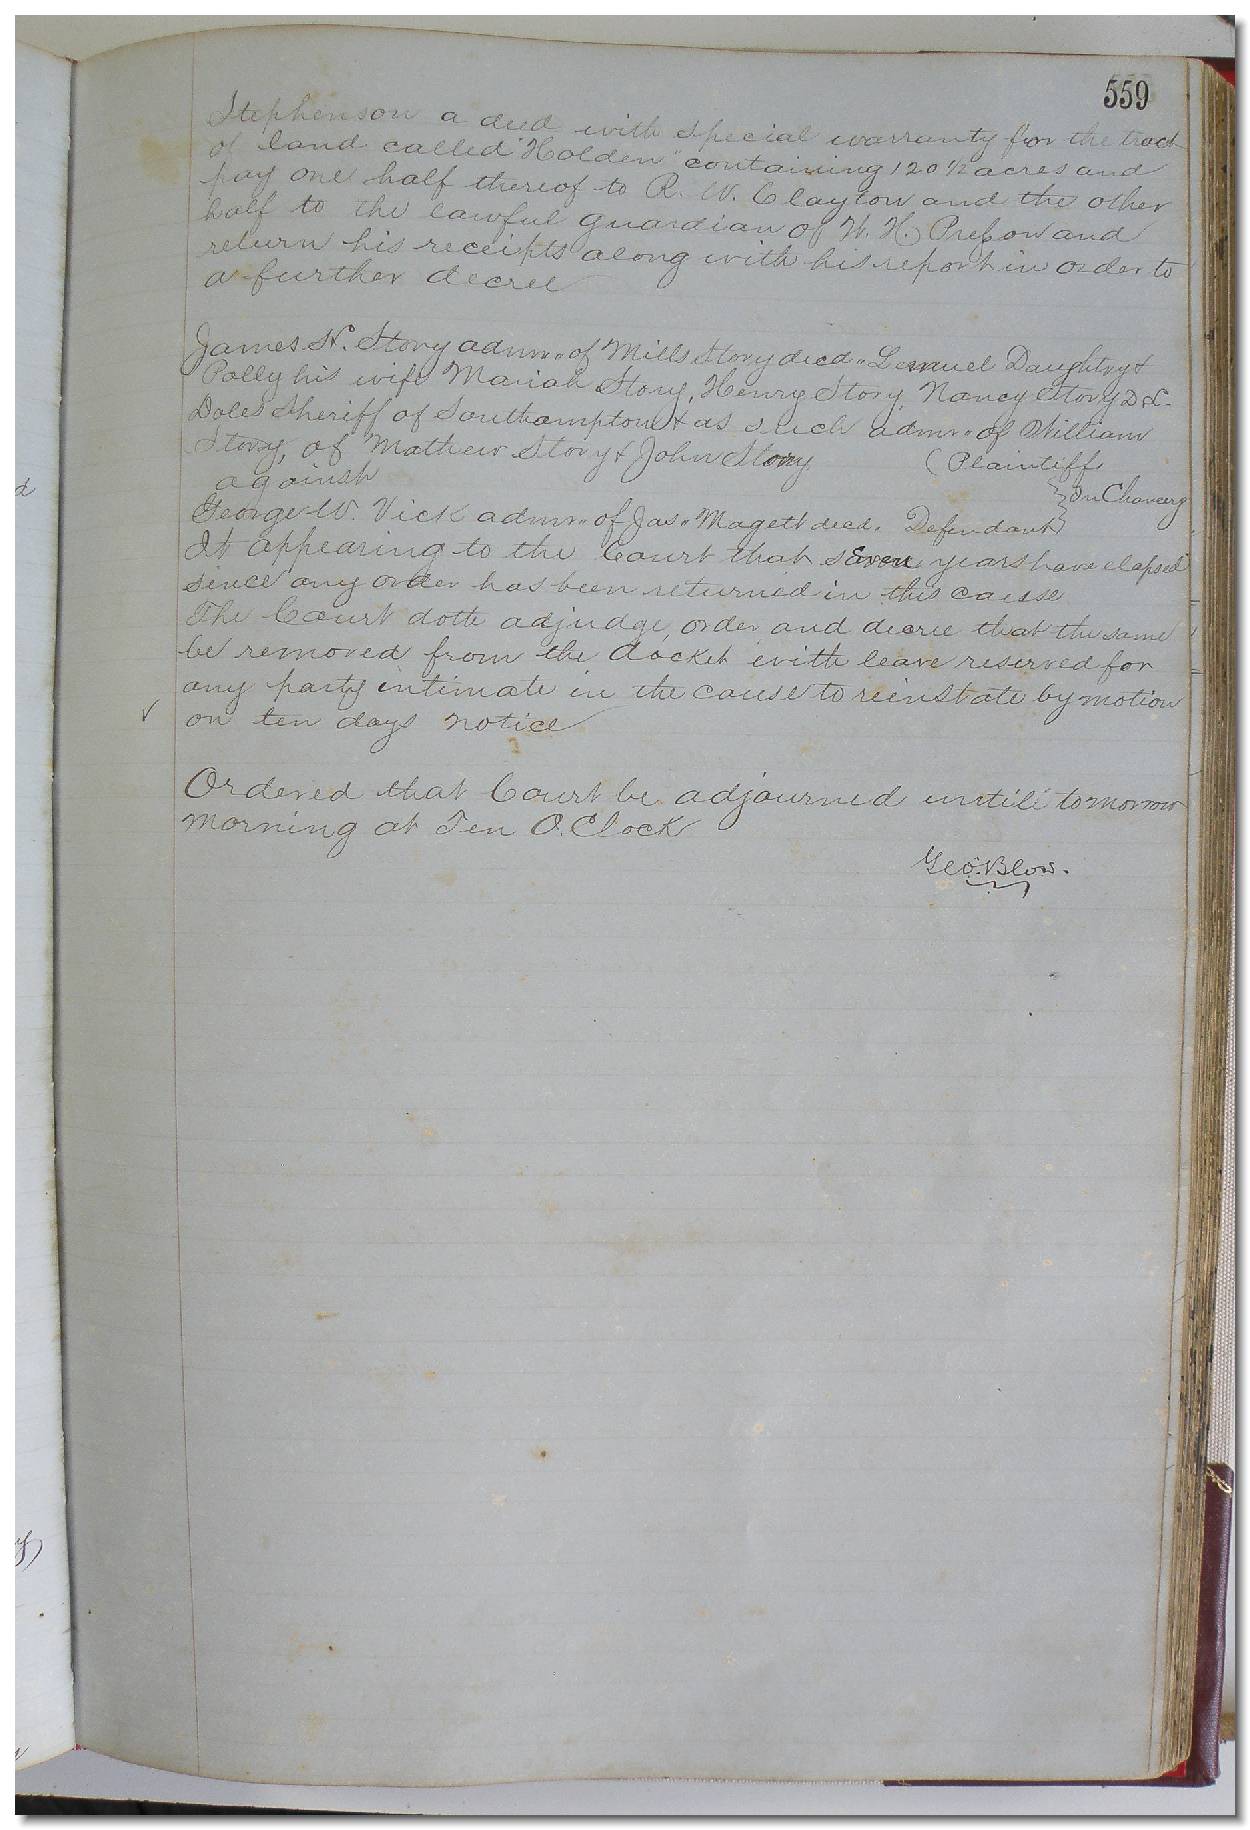 559
Stephenson a deed with special warranty for the tract
of land called "Holden" containing 120 1/2 acres and
pay one half thereof to R. W. Clayton and the other
half to the lawful guardian of W. H. and
return his receipts along with his report in order to
a further decree
James H. Story admr. of Mills Story decd. Lemuel Daughtry &
Polly his wife Mariah Story, Henry Story, Nancy Story
Doles Sheriff of Southampton & as such admr. of William
Story, of Mathew Story & John Story (Plaintiff
against
} In Chancery
George W. Vick admr. of Jas. Magett decd. Defendant
It appearing to the Court that seven years have elapsed
since any order has been returned in this cause
The Court doth adjudge, order and decree that the same
be removed from the docket with leave reserved for
any party intimate in the cause to reinstate by motion
on ten days notice
Ordered that Court be adjourned untill tomorrow
morning at Ten O. Clock
Geo. Blow.